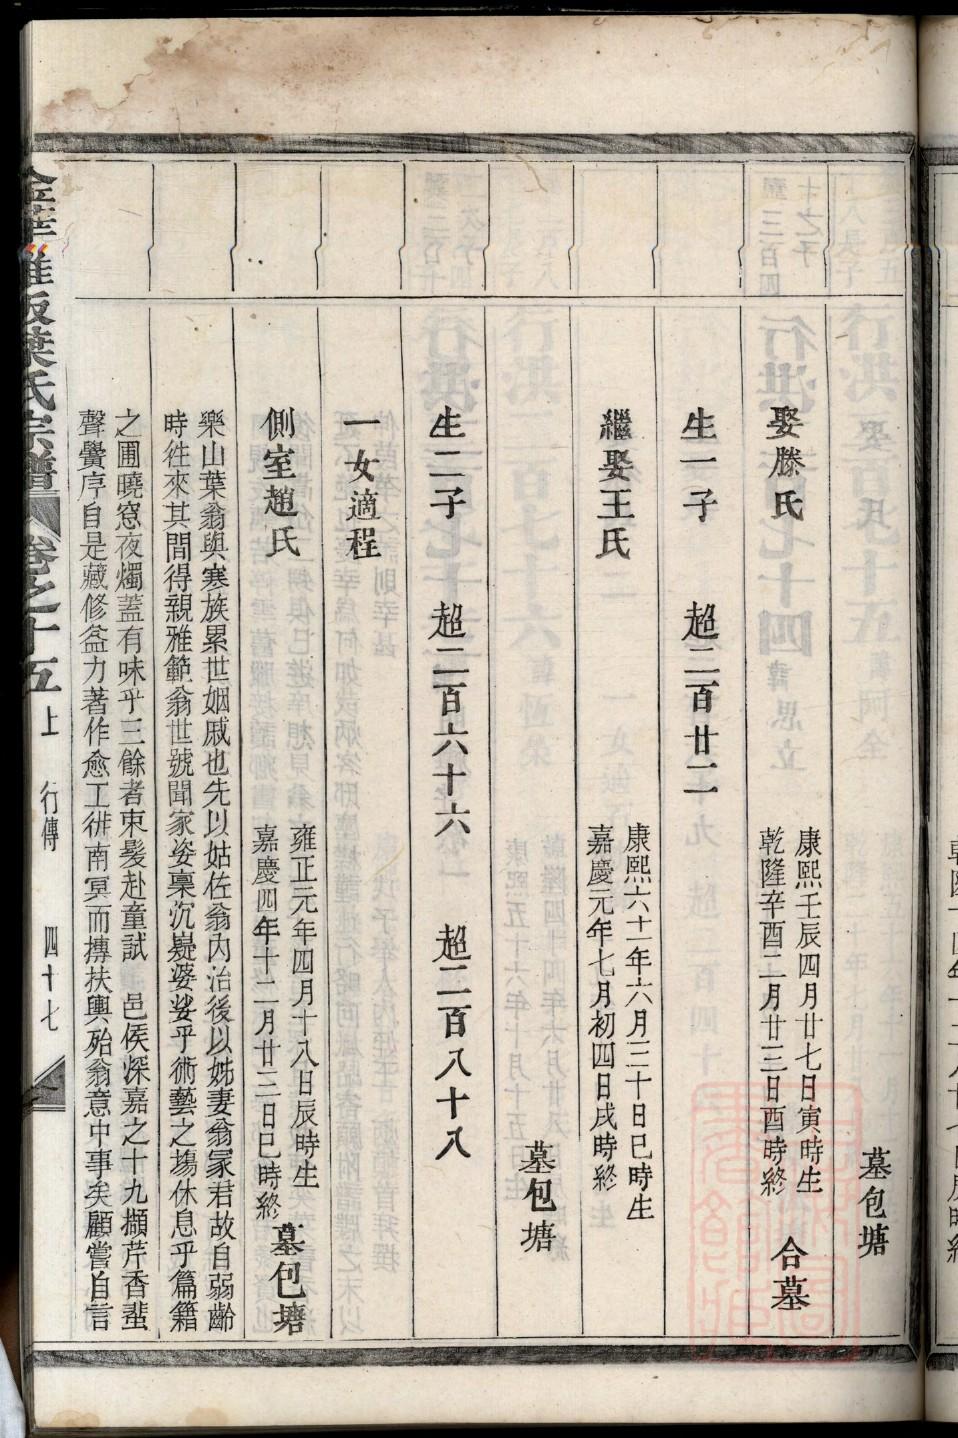 墓包塘
娶滕氏
康熙壬辰四月廿七日寅時生
乾隆辛酉二月廿三日酉時終
合墓
生一子 超二百廿二
繼娶王氏
康熙六十一年六月三十日巳時生
嘉慶元年七月初四日戌時終
墓包塘
生二子 超二百六十六 超二百八十八
一女適程
側室趙氏
雍正元年四月十八日辰時生
嘉慶四年十二月廿三日巳時終
墓包塘
樂山葉翁與寒族累世姻戚也先以姑佐翁內治後以姊妻翁冢君故自弱齡
時徃來其間得親雅範翁世號聞家姿稟沉嶷婆娑乎術藝之塲休息乎篇籍
之圃曉窓夜燭蓋有味乎三餘者束髮赴童試 邑侯深嘉之十九擷芹香蜚
聲黌序自是藏修益力著作愈工徘南冥而摶扶輿殆翁意中事矣顧嘗自言
金華雅畈葉氏宗譜 卷之十五 上 行傳 四十七